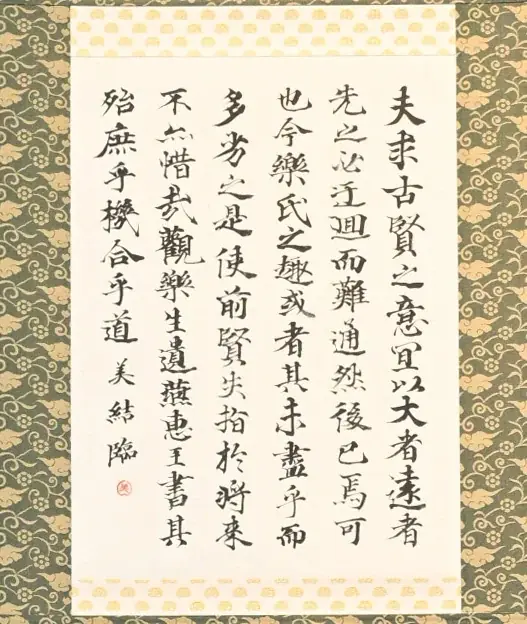 夫求古賢之意宜以大者遠者
先之必迂迴而難通然後已焉可
也今樂氏之趣或者其未盡乎而
多劣之是使前賢失指於將來
不亦惜哉觀樂生遺燕惠王書其
殆庶乎機合乎道 美結臨